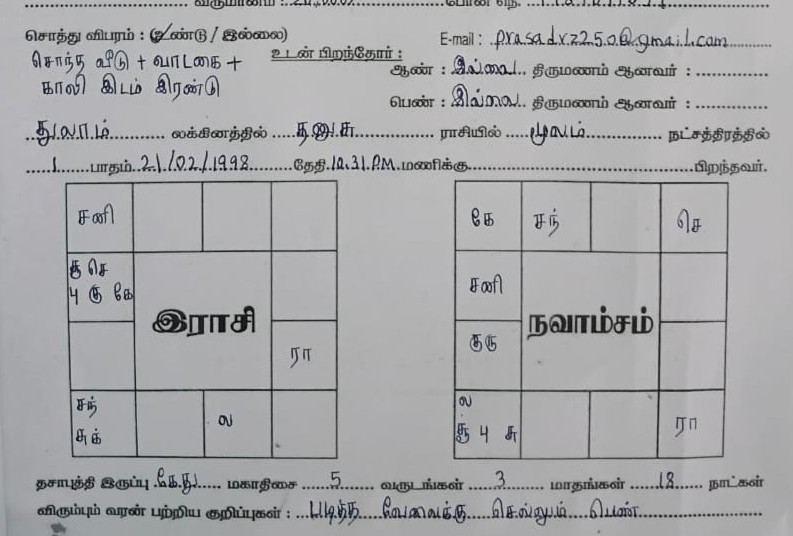 சொத்து விபரம் : உண்டு / இல்லை) E-mail : prasadrz250@gmail.com
சொந்த வீடு + வாடகை + உடன் பிறந்தோர் :
ஆண் : இல்லை திருமணம் ஆனவர் :
காலி இடம் இரண்டு
பெண் : இல்லை திருமணம் ஆனவர் :
துலாம் லக்கினத்தில் தனுசு ராசியில் மூலம் நட்சத்திரத்தில்
1 பாதம் 21/02/1998 தேதி 10.31.P.M. மணிக்கு பிறந்தவர்.
சனி
சூ செ
பு கு கே
இராசி
ரா
சந்
சுக்
ல
கே சந் செ
சனி
நவாம்சம்
குரு
ல
சூ பு சு
ரா
தசாபுத்தி இருப்பு கேது மகாதிசை 5 வருடங்கள் 3 மாதங்கள் 18 நாட்கள்
விரும்பும் வரன் பற்றிய குறிப்புகள் : படித்த வேலைக்கு செல்லும் பெண்